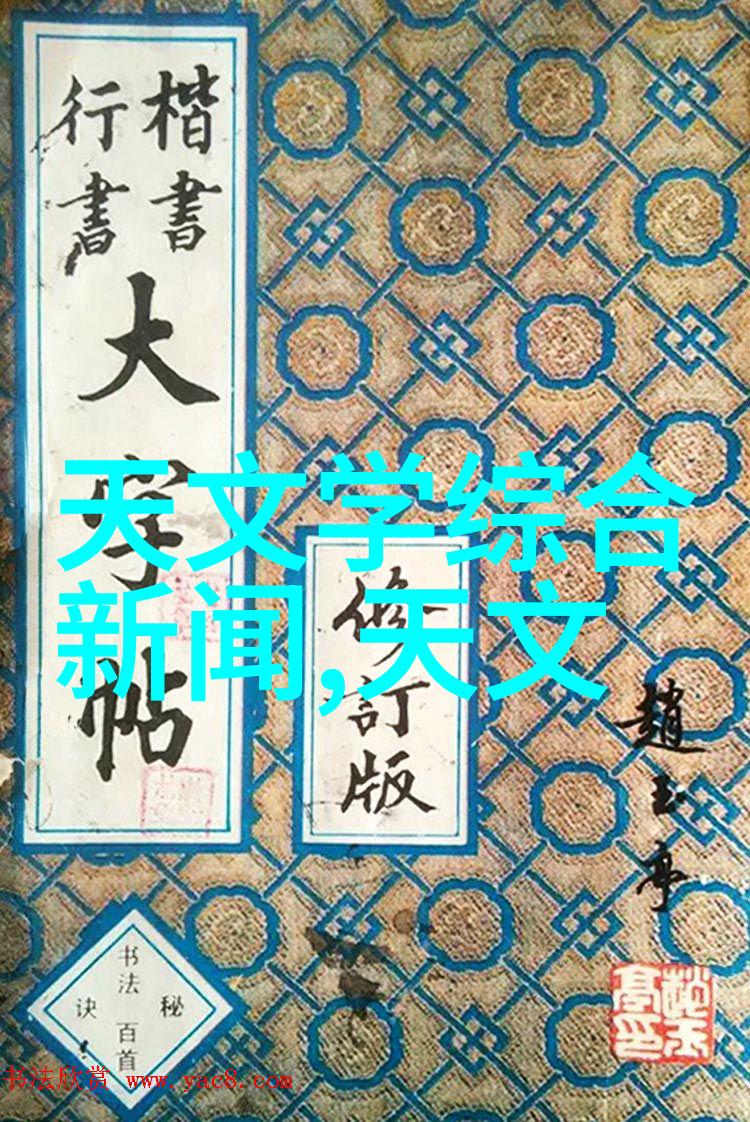 楷書
行書
大字帖
修訂版
趙玉亭
天文学综合
新闻,天文
书法百首
秘诀
书法欣赏 www.yac8.com